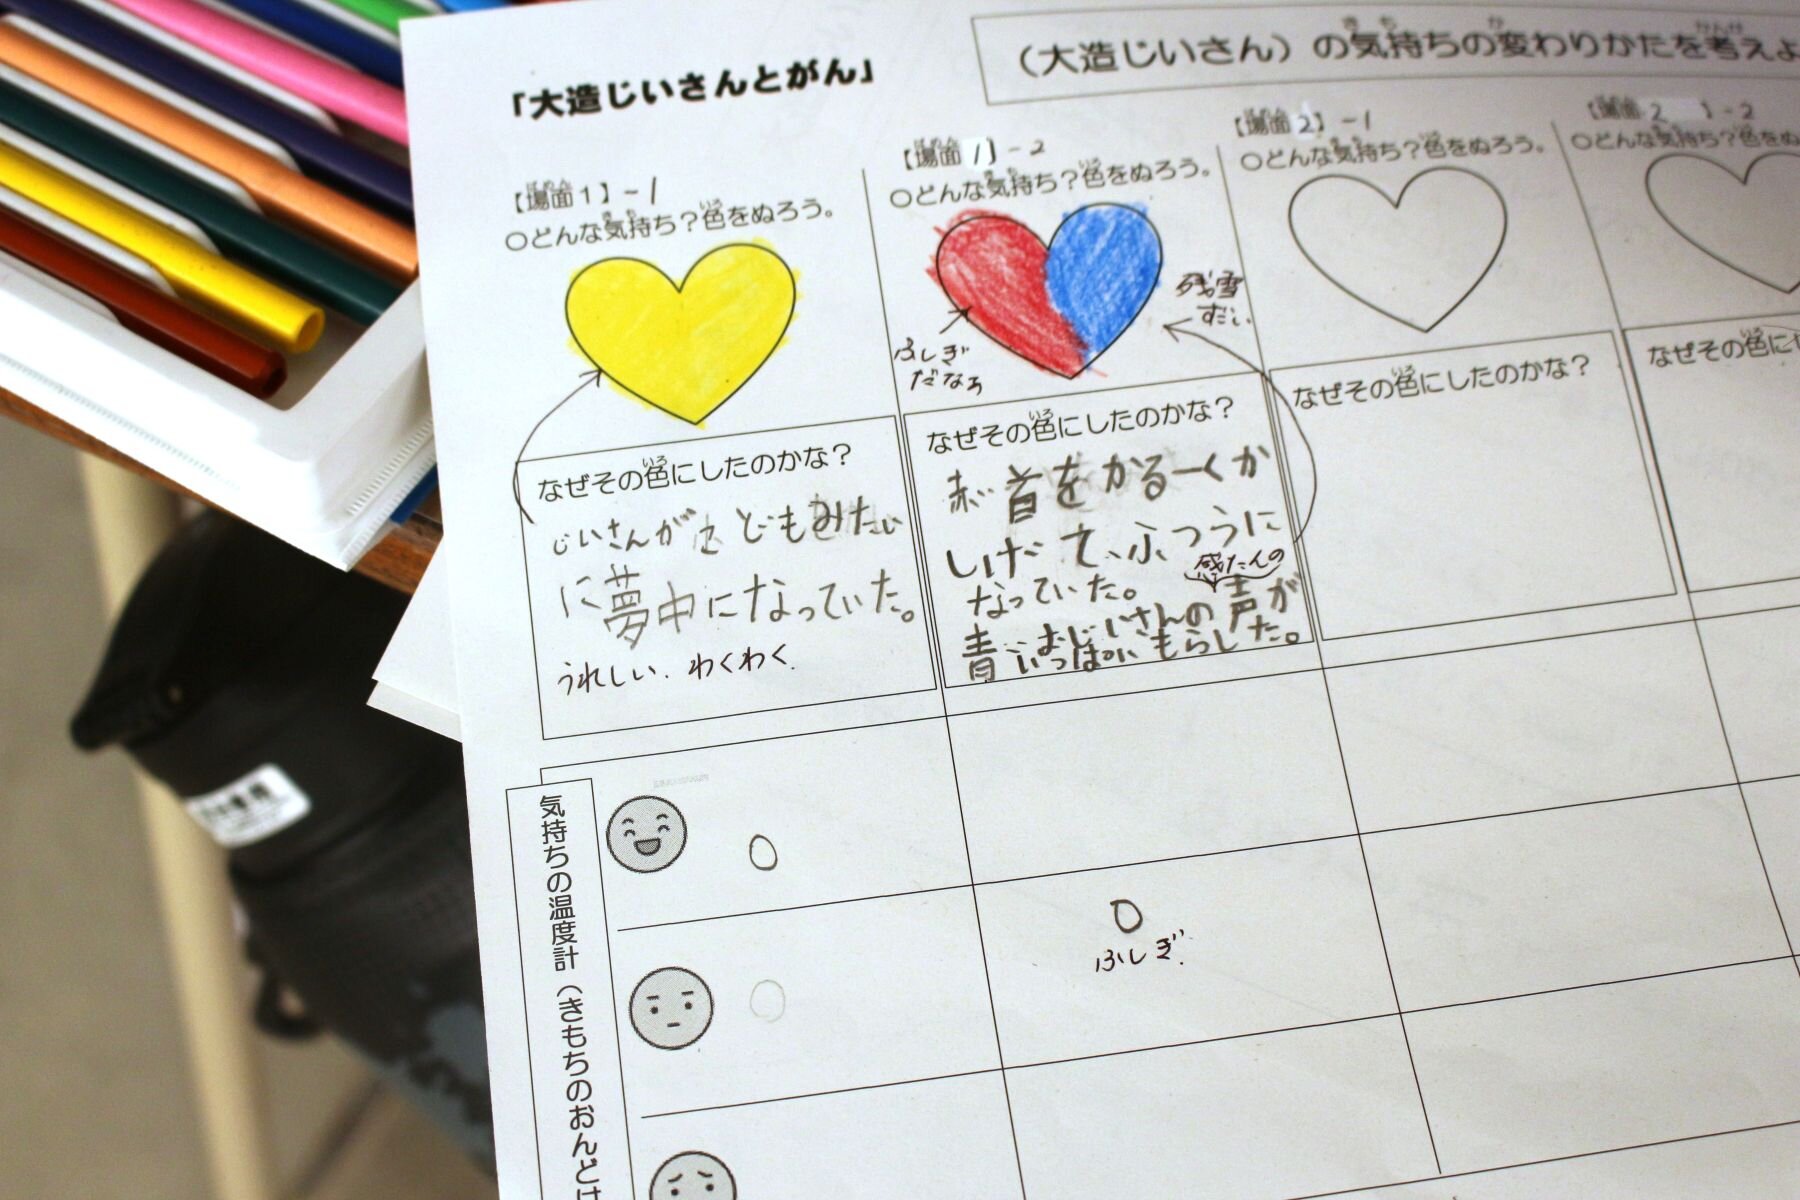 「大造じいさんとがん」
（大造じいさん）の気持ちの変わりかたを考えよ
【場面１】-1
○どんな気持ち？色をぬろう。
なぜその色にしたのかな？
じいさんが こどもみたい
に夢中になっていた。
うれしい. わくわく.
【場面 1】-2
○どんな気持ち？色をぬろう。
ふしぎ
だなぁ
残雪
すごい
なぜその色にしたのかな？
赤… 首をかるーくか
しげて、ふつうに
なっていた。
感たんの
青 おじいさんの声が
いっぱい もらした。
【場面 2】-1
○どんな気持ち？色をぬろう。
なぜその色にしたのかな？
【場面 2 】-2
○どんな気持ち？色をぬ
なぜその色に
気持ちの温度計（きもちのおんどけ
ふしぎ.